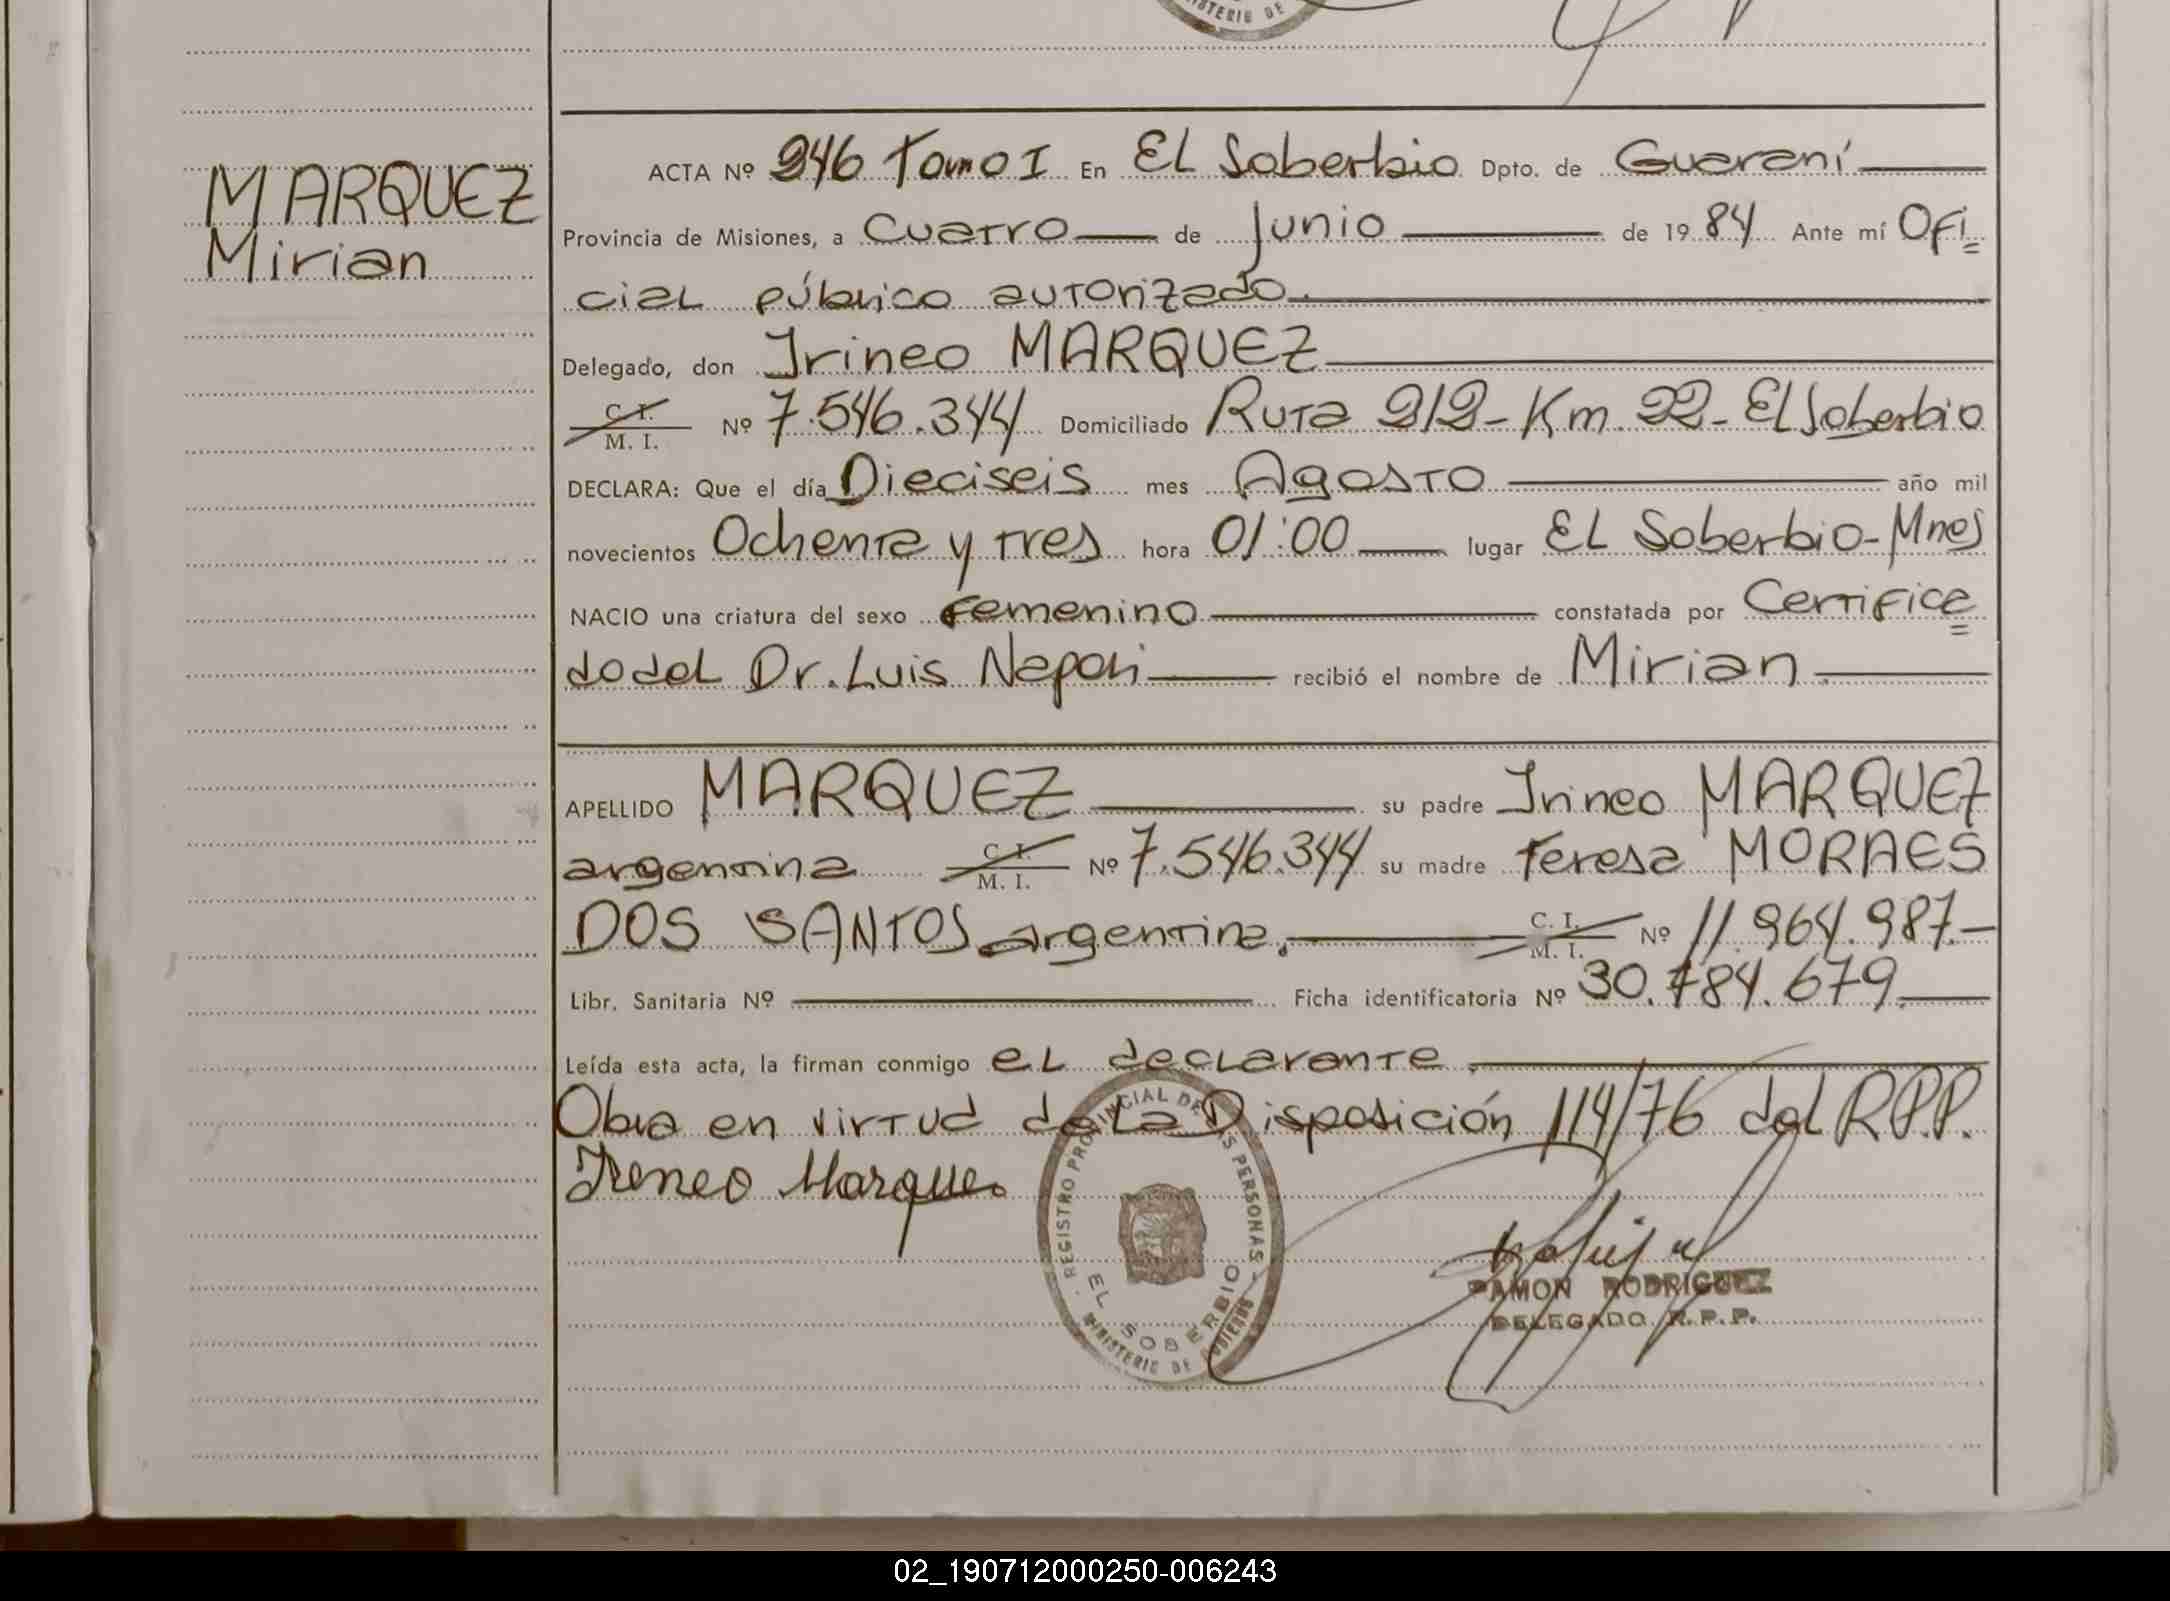 MINISTERIO DE
MARQUEZ
Mirian
ACTA Nº 246 Tomo I En EL Soberbio Dpto. de Guaraní
Provincia de Misiones, a cuatro de Junio de 1984 Ante mí Ofi=
cial público autorizado.
Delegado, don Irineo MARQUEZ
C. I. M. I. Nº 7.546.344 Domiciliado Ruta 212-Km. 22-El Soberbio
DECLARA: Que el día Dieciseis mes Agosto año mil
novecientos Ochenta y tres hora 01:00 lugar EL Soberbio-Mnes
NACIO una criatura del sexo Femenino constatada por Certifica=
do del Dr. Luis Napoli recibió el nombre de Mirian
APELLIDO MARQUEZ su padre Irineo MARQUEZ
argentina C. I. M. I. Nº 7.546.344 su madre Teresa MORAES
DOS SANTOS argentina. C. I. M. I. Nº 11.964.987.-
Libr. Sanitaria Nº Ficha identificatoria Nº 30.784.679.
Leída esta acta, la firman conmigo el declarante.
Obra en virtud de la Disposición 114/76 del R.P.P.
Ireneo Marquez
REGISTRO PROVINCIAL DE LAS PERSONAS
EL SOBERBIO
MINISTERIO DE GOBIERNO
RAMON RODRIGUEZ
DELEGADO R.P.P.
02_190712000250-006243